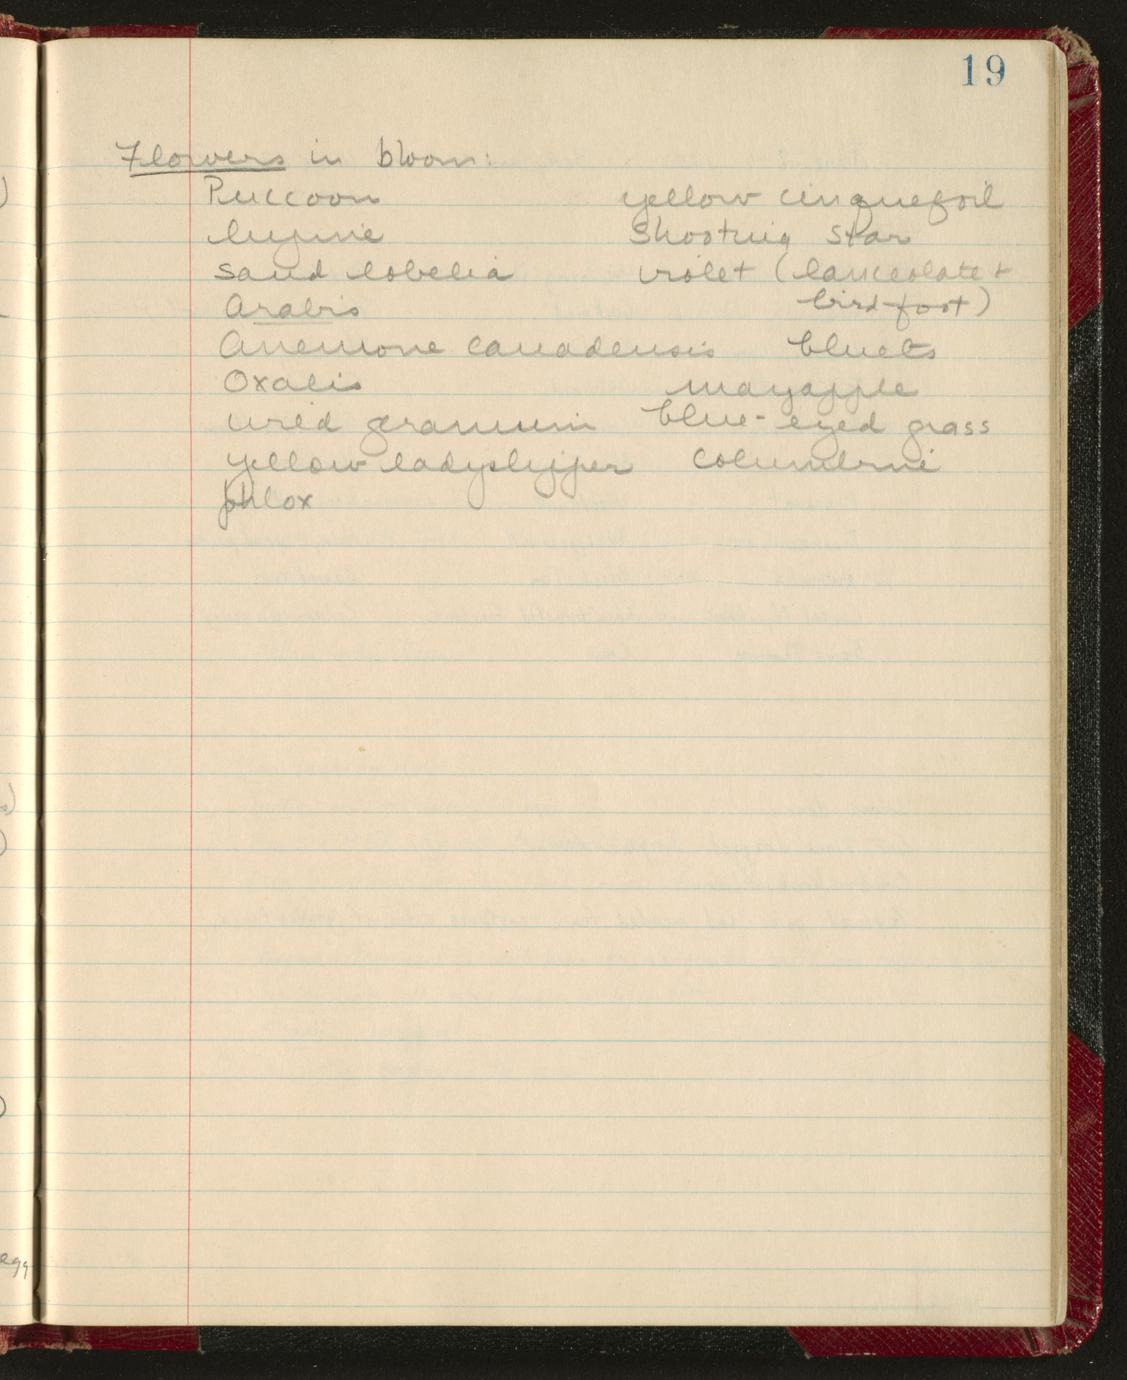 19
Flowers in bloom:
Puccoon yellow cinquefoil
lupine Shooting star
sand lobelia violet (lanceolate +
Arabis bird-foot)
Anemone canadensis bluets
Oxalis mayapple
wild geranium blue-eyed grass
yellow ladyslipper Columbine
phlox
egg